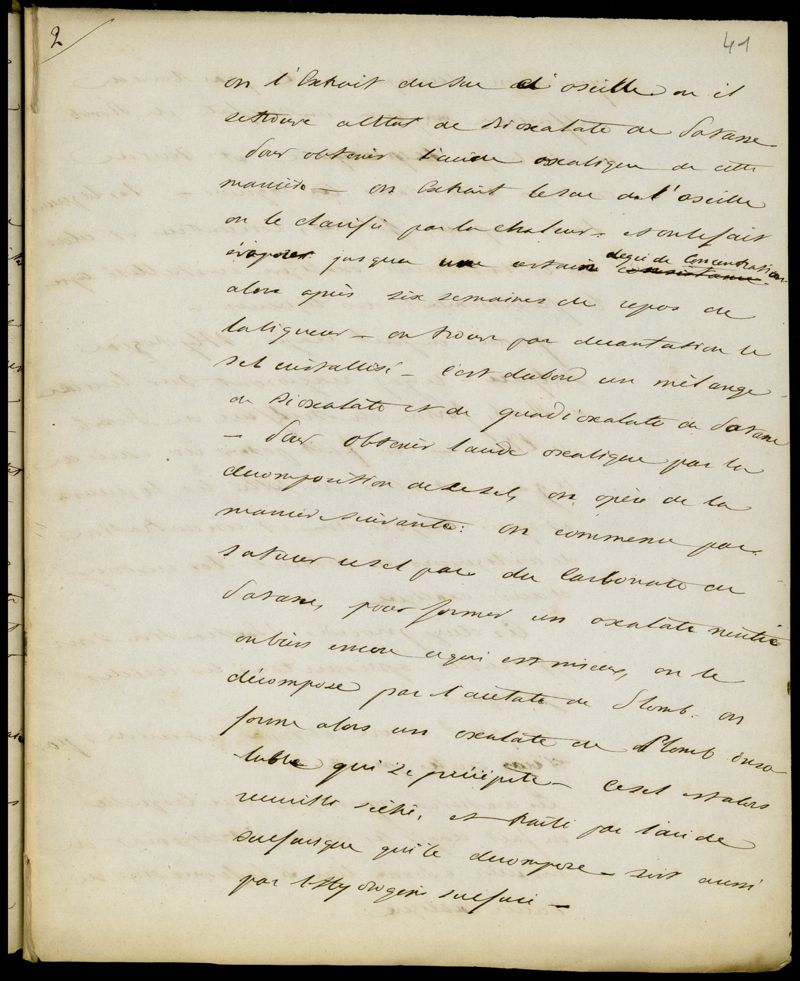 2
41
on l'Extrait du suc d'oseille ou il
se trouve a l'état de Bioxalate de Potasse
Pour obtenir l'acide oxalique de cette
manière — on Extrait le suc de l'oseille
on le clarifie par la chaleur. et on le fait
évaporer jusqu'a un certain degré de Concentration consistance.
alors après six semaines de repos de
la liqueur — on trouve par décantation le
sel cristallisé — c'est dabord un mélange
de Bioxalate et de quadrioxalate de Potasse
— Pour obtenir l'acide oxalique par la
décomposition de ce sel, on opère de la
manière suivante: on commence par
saturer ce sel par du Carbonate de
Potasse, pour former un oxalate neutre
ou bien encore ce qui est mieux, on le
décompose par l'acétate de Plomb. on
forme alors un oxalate de Plomb inso-
luble qui se précipite — ce sel est alors
recueilli séché, et traité par l'acide
sulfurique qui le décompose — soit aussi
par l'Hydrogène sulfuré —